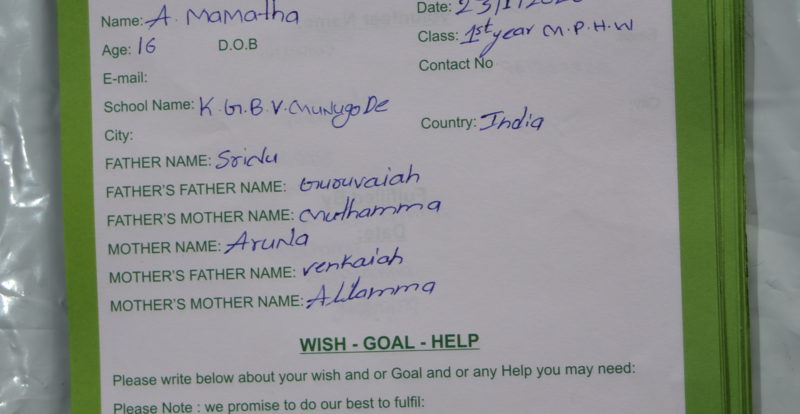 Name: A. Mamatha
Date: 23/1/
Age: 16 D.O.B
Class: 1st year M.P.H.W
E-mail:
Contact No
School Name: K.G.B.V. Munugode
City:
Country: India
FATHER NAME: Srinu
FATHER'S FATHER NAME: Guruvaiah
FATHER'S MOTHER NAME: Muthamma
MOTHER NAME: Aruna
MOTHER'S FATHER NAME: Venkaiah
MOTHER'S MOTHER NAME:
WISH - GOAL - HELP
Please write below about your wish and or Goal and or any Help you may need:
Please Note : we promise to do our best to fulfil: